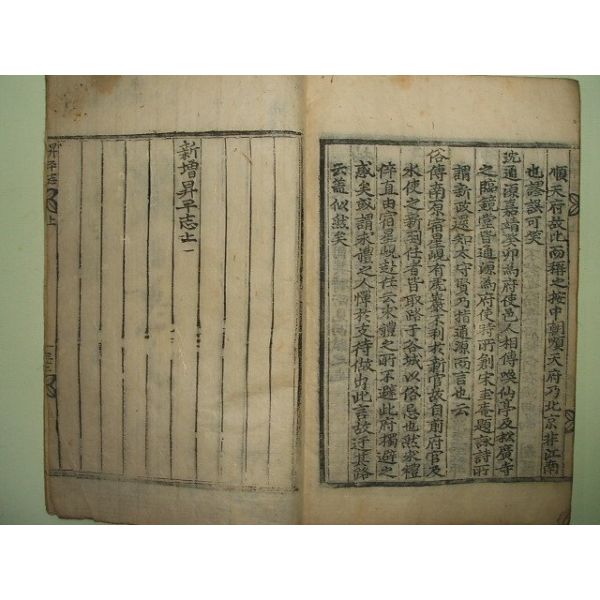 順天府故以而稱之按中朝順天府乃北京非江南
也謬誤可笑
沈通源嘉靖癸卯爲府使邑人相傳喚仙亭及松廣寺
之臨鏡堂皆通源爲府使時所創宋圭庵題詠詩所
謂新政還知太守賢乃指通源而言也云
俗傳南原宿星峴有虎巖不利於新官故自前府官及
水使之新到任者皆取路于谷城以俗忌也然水禮
倅直由宿星峴赴任云求禮之所不避此府獨避之
惑矣或謂求禮之人憚於支待做出此言故迂其路
云蓋似然矣
新增昇平志上
昇平志
上